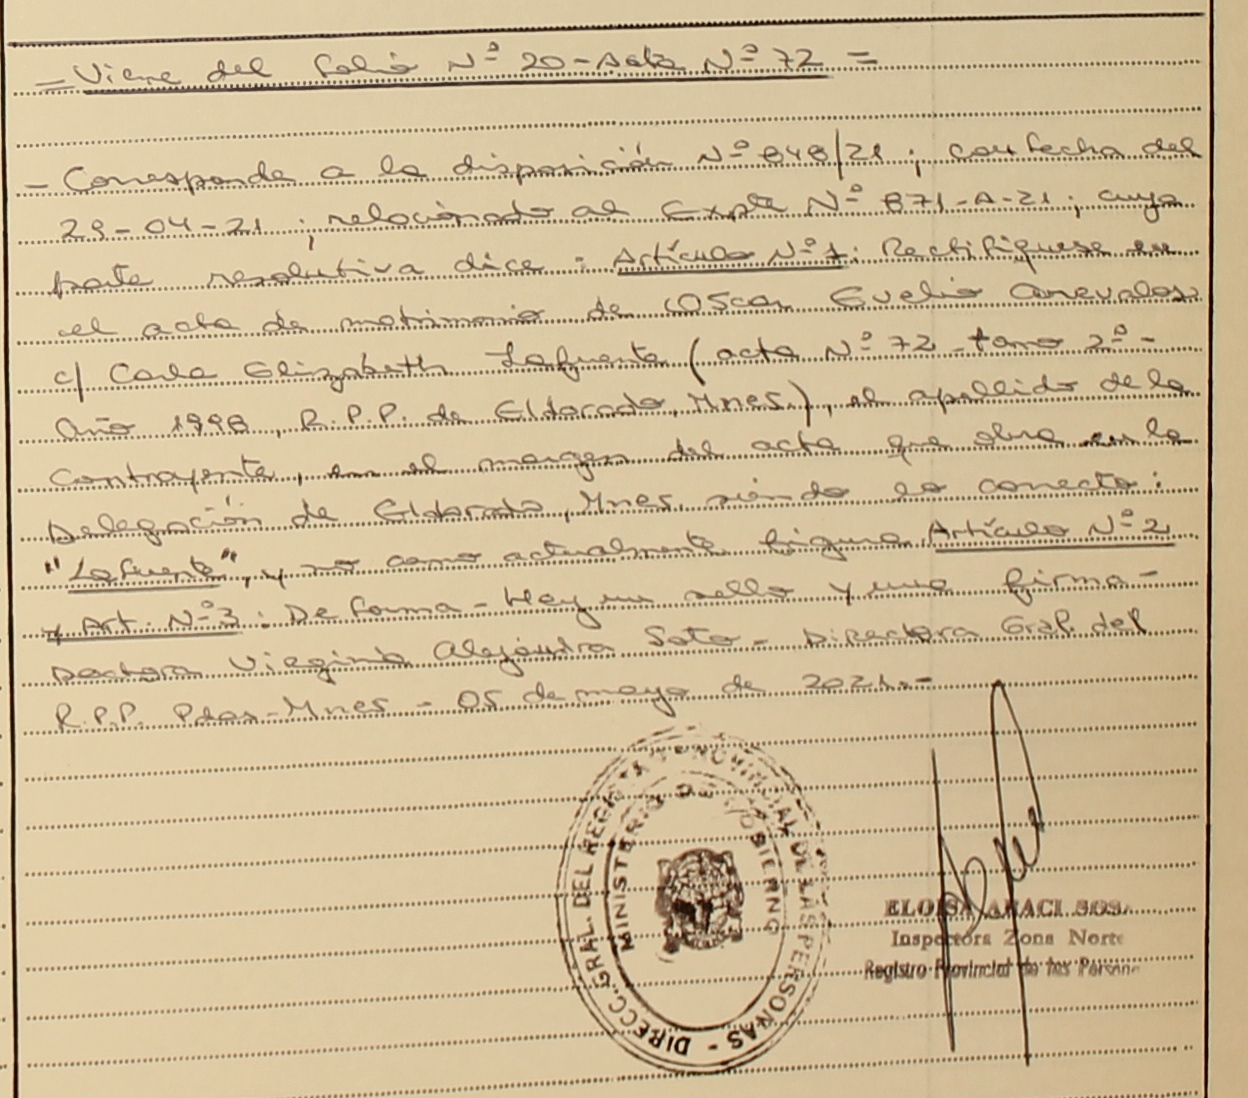 = Viene del folio Nº 20 - Acta Nº 72 =
- Corresponde a la disposición Nº 848/21; con fecha del
29-04-21; relacionado al Expte Nº 871-A-21; cuya
parte resolutiva dice: Artículo Nº 1: Rectifíquese en
el acta de matrimonio de Oscar Evelio Arevalos
c/ Carla Elizabeth Lafuente (acta Nº 72 - tomo 2º -
Año 1998, R.P.P. de Eldorado, Mnes.), el apellido de la
contrayente, en el margen del acta que obra en la
Delegación de Eldorado, Mnes. siendo lo correcto:
"Lafuente", y no como actualmente figura. Artículo Nº 2
y Art. Nº 3: De forma - Hay un sello y una firma -
Doctora Virginia Alejandra Soto - Directora Gral. del
R.P.P. Pdas - Mnes - 05 de mayo de 2021.-
DIRECC. GRAL. DEL REGISTRO PROVINCIAL DE LAS PERSONAS -
MINISTERIO DE GOBIERNO
ELOISA ARACI SOSA
Inspectora Zona Norte
Registro Provincial de las Persona